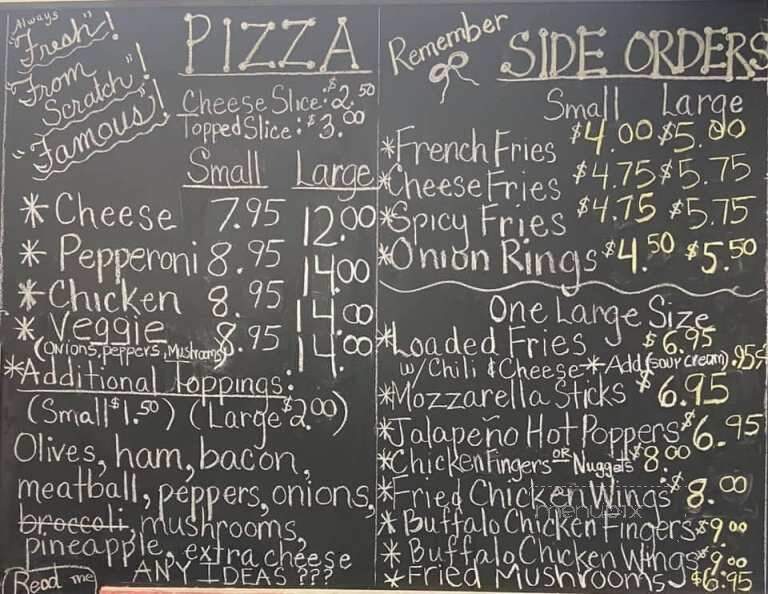 "Always
Fresh"!
"From
Scratch"!
"Famous"!
PIZZA
Cheese Slice: $2.50
Topped Slice: $3.00
Small Large
* Cheese 7.95 12.00
* Pepperoni 8.95 14.00
* Chicken 8.95 14.00
* Veggie 8.95 14.00
(Onions, peppers, Mushrooms)
*Additional Toppings:
(Small $1.50) (Large $2.00)
Olives, ham, bacon,
meatball, peppers, onions,
broccoli, mushrooms,
pineapple, extra cheese
ANY IDEAS ???
Read me
Remember
SIDE ORDERS
Small Large
*French Fries $4.00 $5.00
*Cheese Fries $4.75 $5.75
*Spicy Fries $4.75 $5.75
*Onion Rings $4.50 $5.50
One Large Size
*Loaded Fries $6.95
w/Chili & Cheese *Add (sour cream) .95¢
*Mozzarella Sticks $6.95
*Jalapeño Hot Poppers $6.95
*Chicken Fingers OR Nuggets $8.00
*Fried Chicken Wings $8.00
* Buffalo Chicken Fingers $9.00
* Buffalo Chicken Wings $9.00
* Fried Mushrooms $6.95
menupix